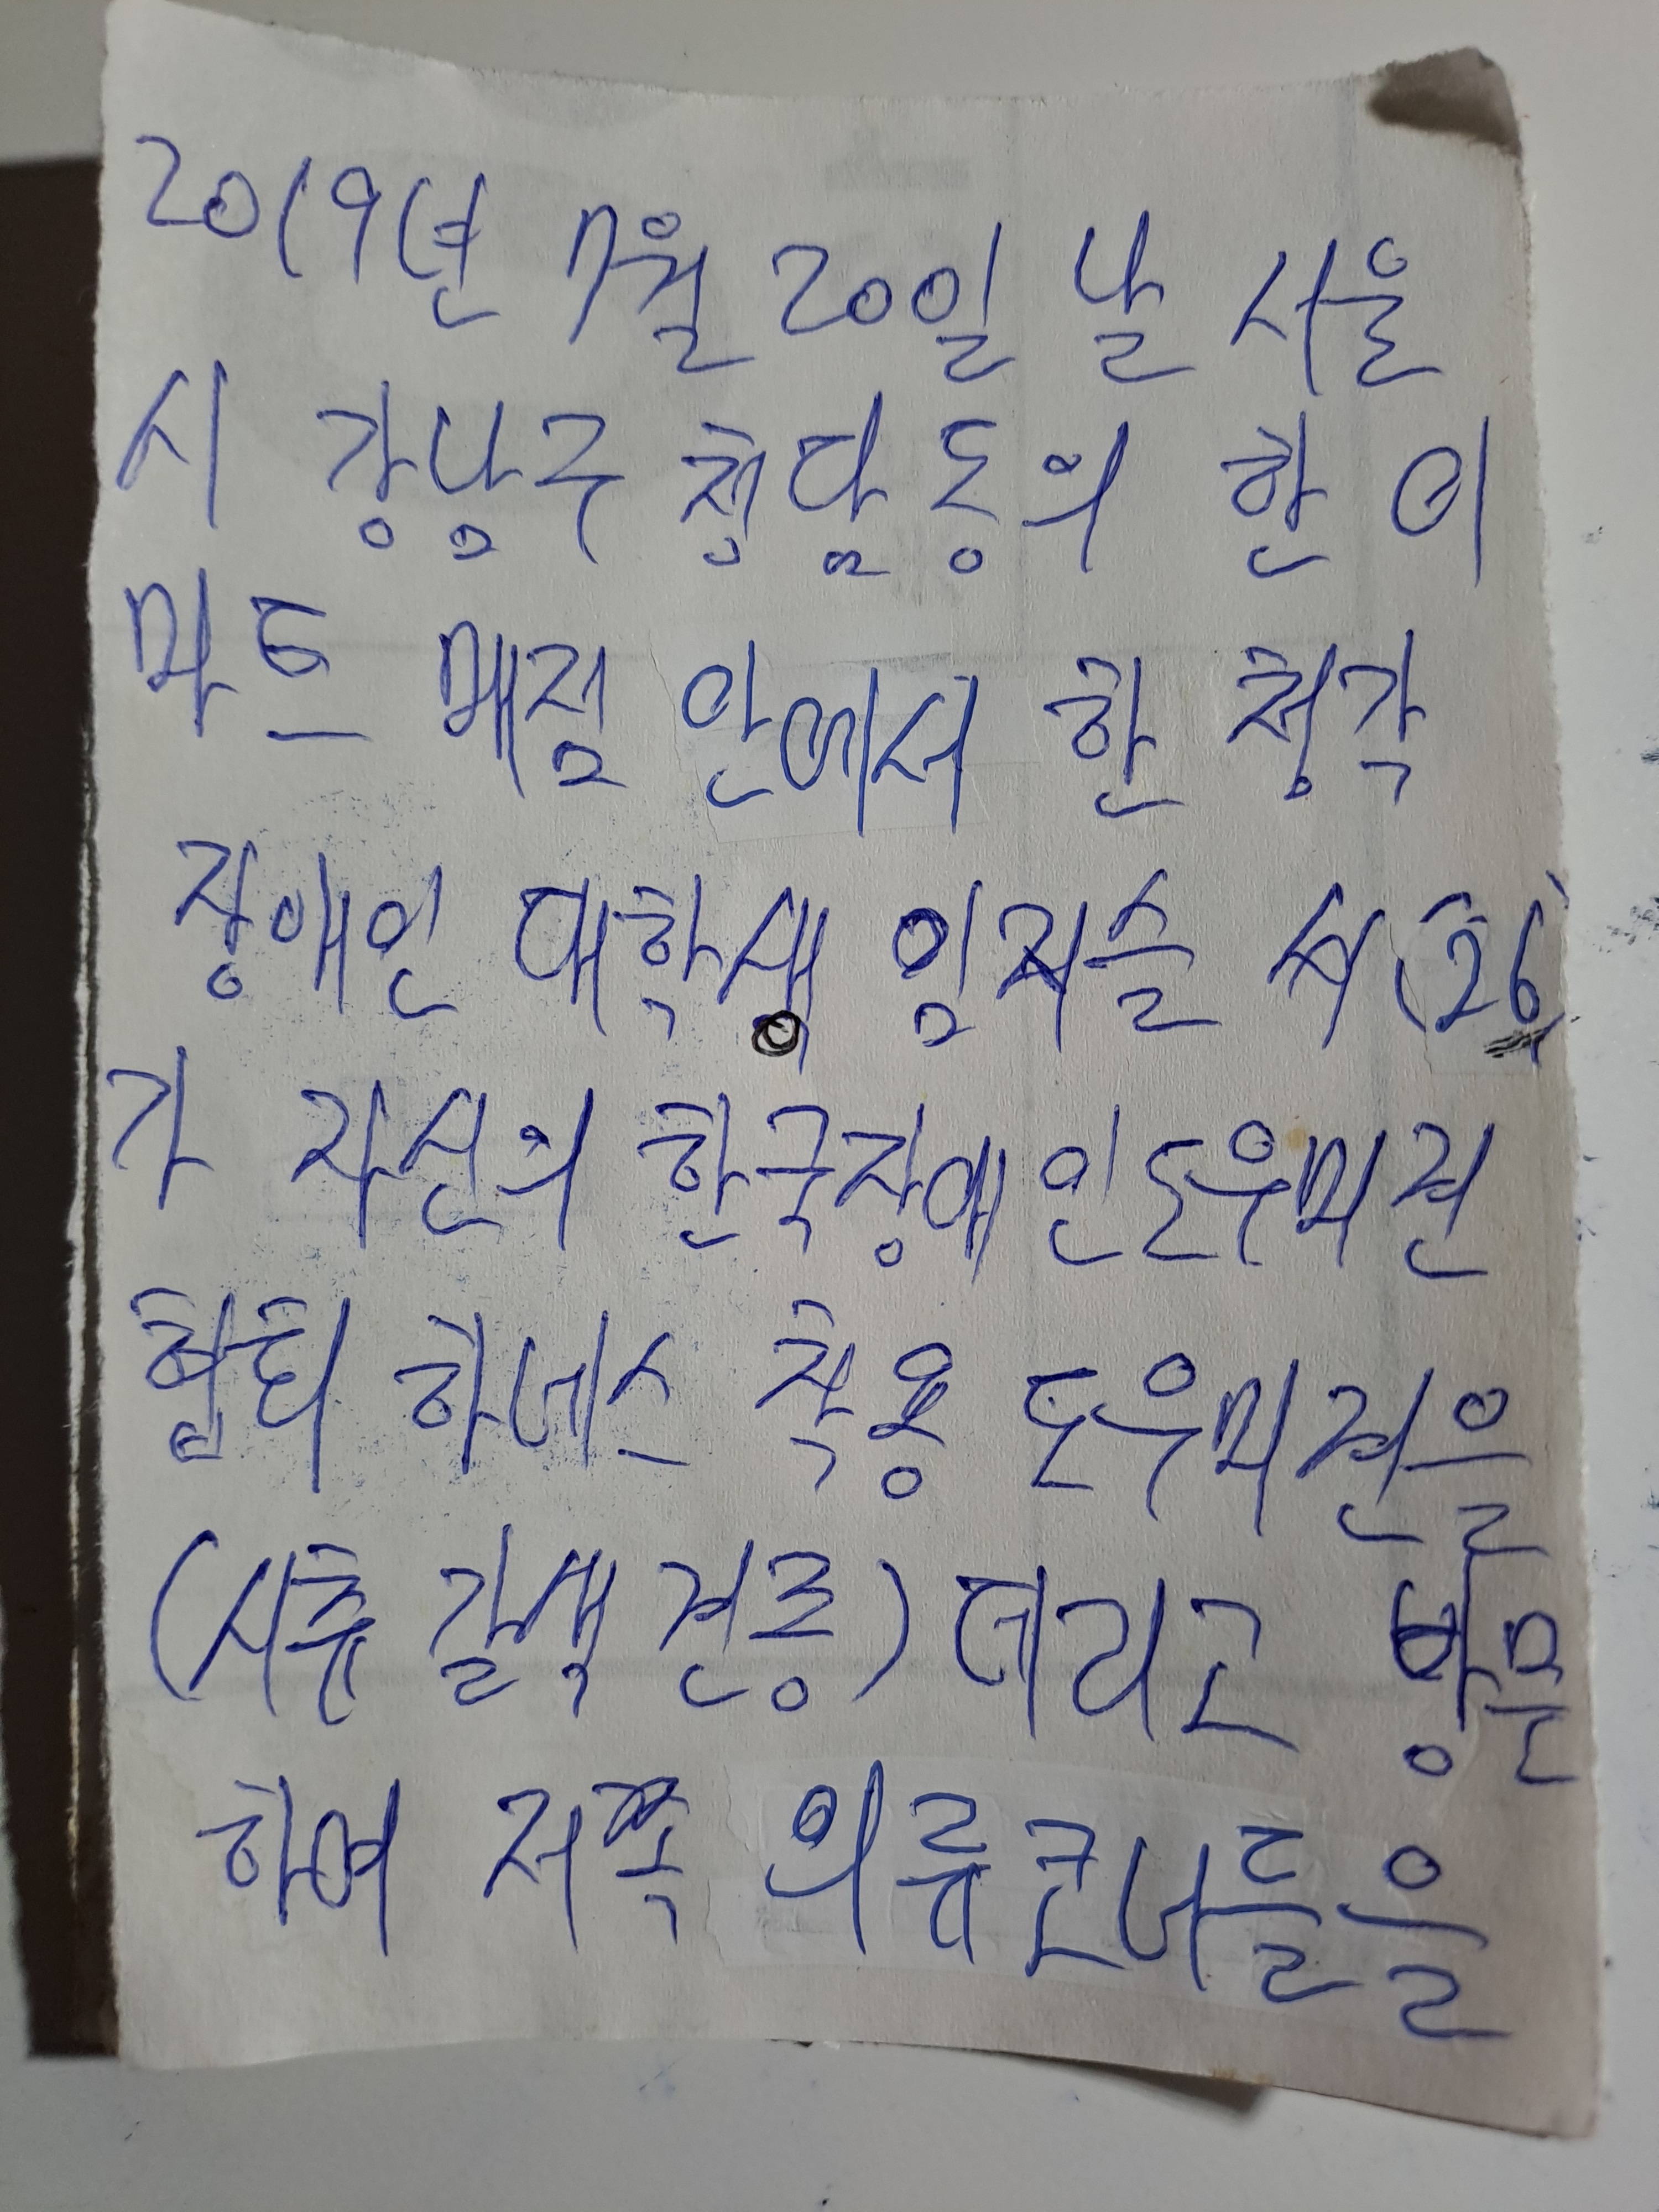 2019년 7월 20일 날 서울
시 강남구 청담동의 한 이
마트 매점 안에서 한 청각
장애인 대학생 임저슬 씨(26)
가 자신의 한국장애인도우미견
협회 하네스 착용 도우미견을
(서츄 갈색 견종) 데리고 방문
하여 저쪽 의류코너들을